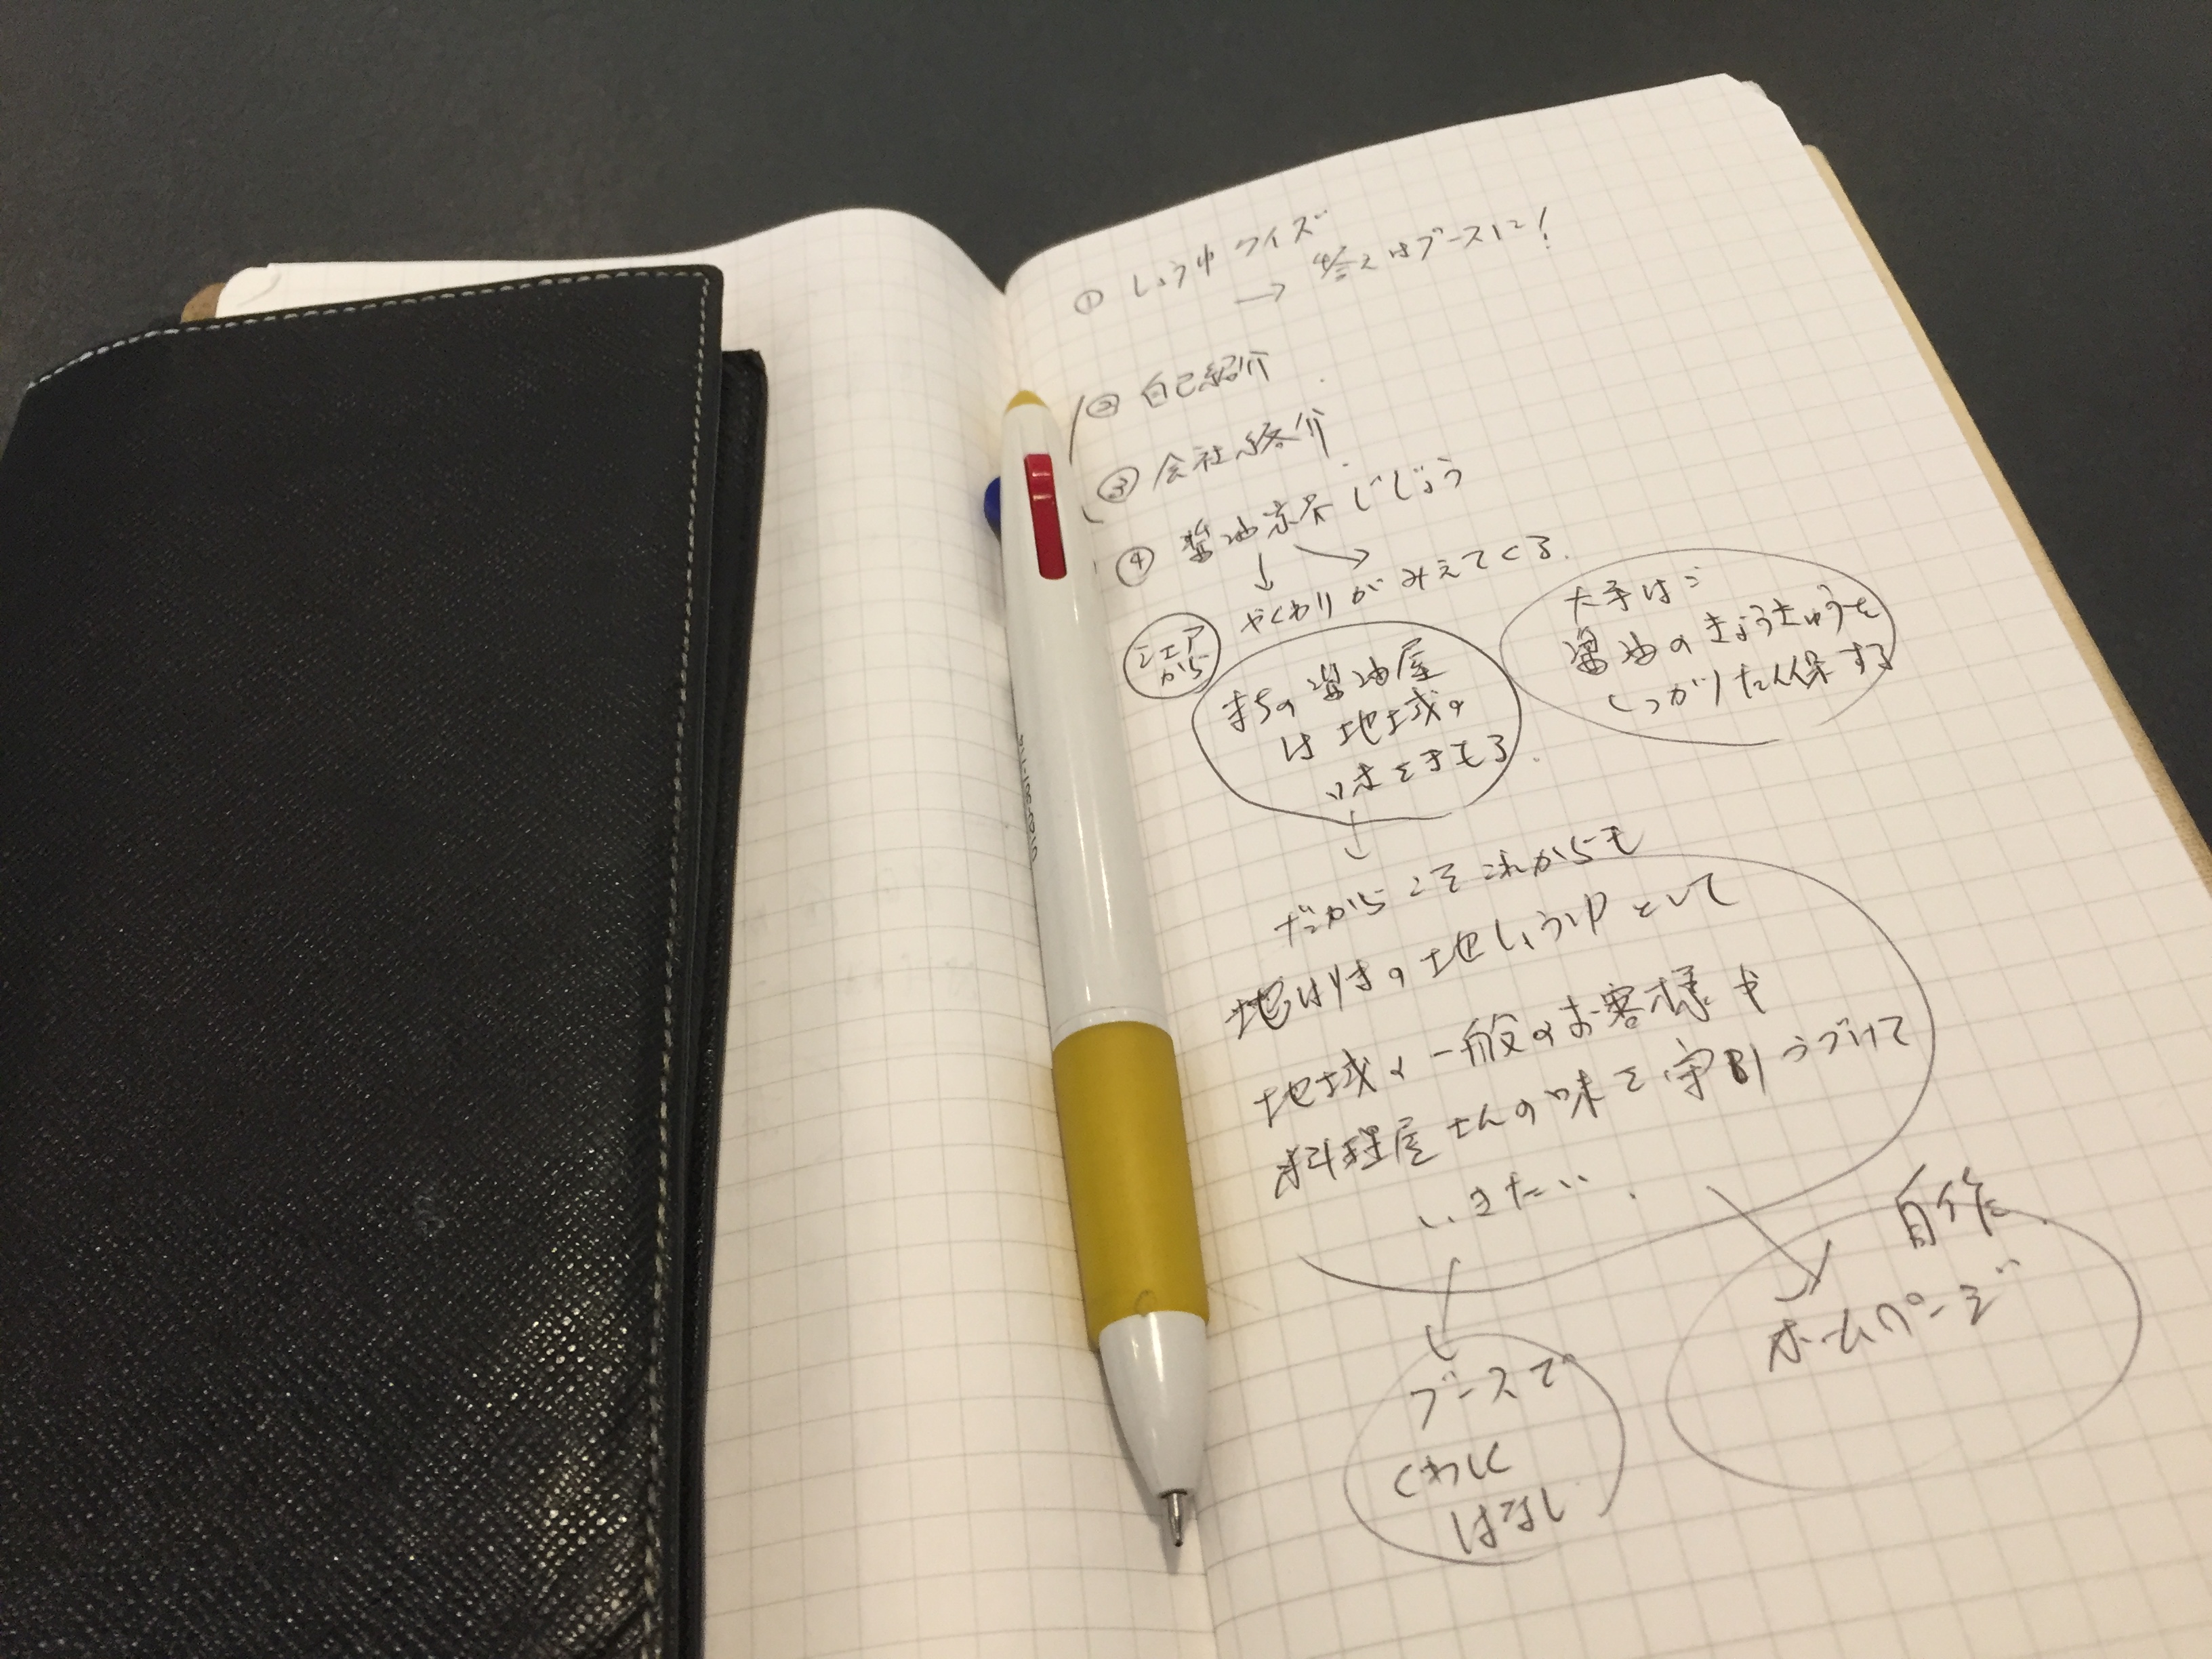 ① しょうゆクイズ
→ 答えはブースに!
② 自己紹介
③ 会社紹介
④ 醤油業界じじょう
↓ →
やくわりがみえてくる.
シェア
から
大手は
醤油のきょうきゅうを
しっかりたん保する
まちの醤油屋
は地域の
味をまもる.
↓
だからこそこれからも
の地しょうゆとして
地域の一般のお客様や
料理屋さんの味を守りつづけて
いきたい.
自作
ホームページ
ブースで
くわしく
はなし